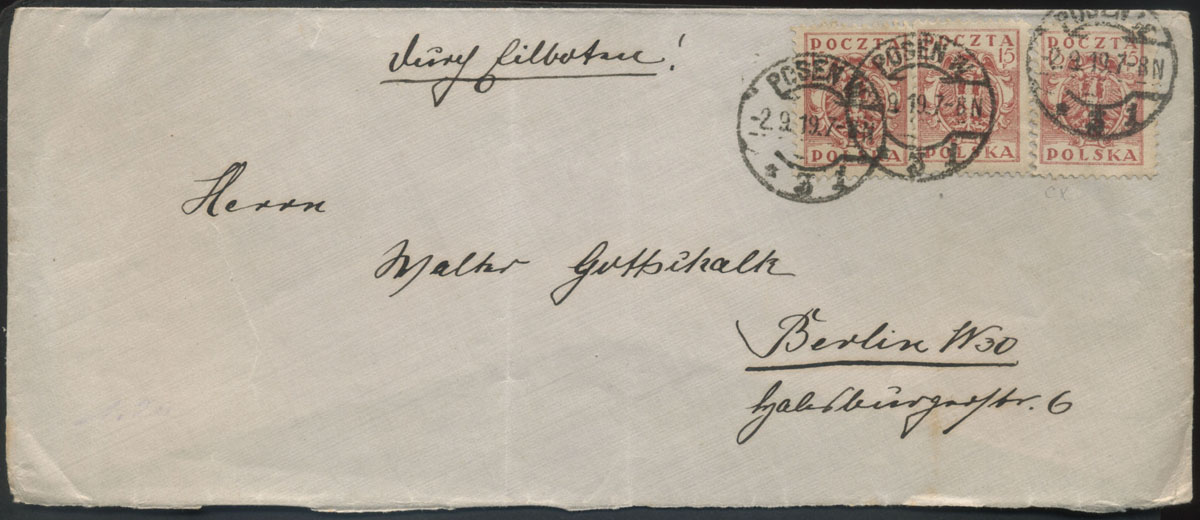 Durch Eilboten!
POCZTA 15 POLSKA
POCZTA 15 POLSKA
POCZTA 15 POLSKA
POSEN
-2.9.19.7-8N
* 3 1
POSEN
9.19.7-8N
3 1
POSEN
-2.9.19.7-8N
* 3 1
Herrn
Walter Gottschalk
Berlin W30
Habsburgerstr. 6